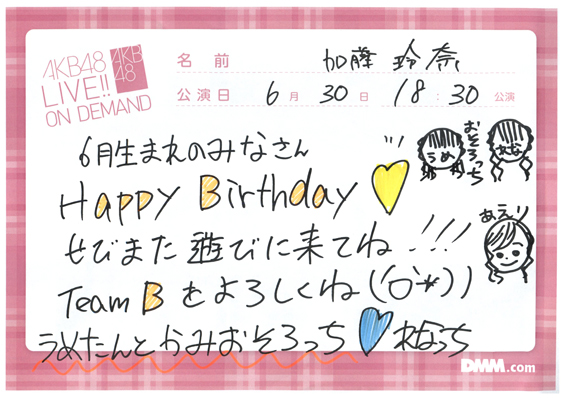 AKB48
LIVE!!
ON DEMAND
AKB
48
名前 加藤 玲奈
公演日 6月 30日 18:30 公演
6月生まれのみなさん
Happy Birthday
ぜひまた遊びに来てね!!!
Team Bをよろしくね(('O'*))
うめたんとかみおそろっち れなっち
うめ
おそろっち
れな
あえり
DMM.com